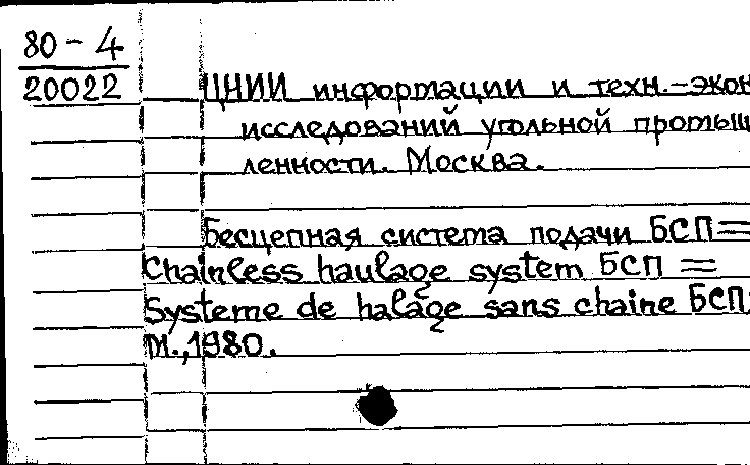 80-4
20022
ЦНИИ информации и техн.-экон
исследований угольной промыш
ленности. Москва.
Бесцепная система подачи БСП=
Chainless haulage system БСП =
Systeme de halage sans chaine БСП:
М.,1980.